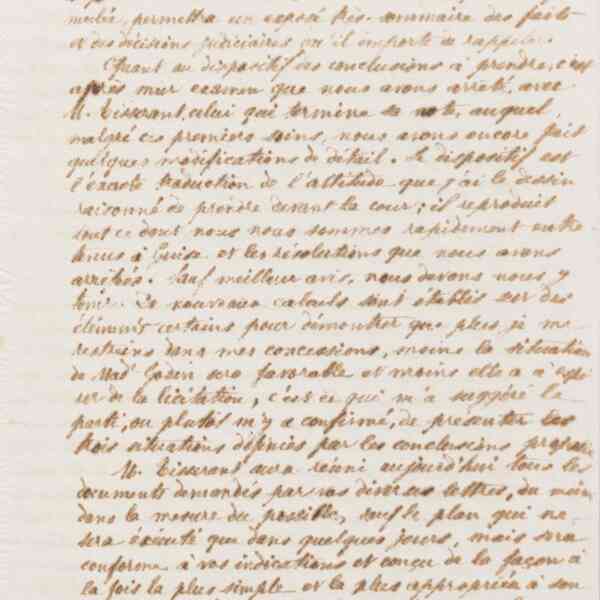 mulée, permettra un exposé très-sommaire des faits
et des décisions judiciaires qu'il importe de rappeler.
Quant au dispositif des conclusions à prendre, c'est
après mur examen que nous avons arrêté, avec
M. Tisserant, celui qui termine sa note, auquel,
malgré ces premiers soins, nous avons encore fait
quelques modifications de détail. Le dispositif est
l'exacte traduction de l'attitude que j'ai le dessin
raisonné de prendre devant la cour; il reproduit
tout ce dont nous nous sommes rapidement entre
tenus à Guise et les résolutions que nous avons
arrêtées. Sauf meilleur avis, nous devons nous y
tenir. De nouveaux calculs sont établis sur des
éléments certains pour démontrer que plus je me
restreins dans mes concessions, moins la situation
de Mad. Godin sera favorable et moins elle a à espé
rer de la licitation, c'est ce qui m'a suggéré le
parti, ou plutôt m'y a confirmé, de présenter les
trois situations définies par les conclusions
M. Tisserant aura réuni aujourd'hui tous les
documents demandés par vos diverses lettres, du moins
dans la mesure du possible, sauf le plan qui ne
sera exécuté que dans quelques jours, mais sera
conforme à vos indications et conçu de la façon à
la fois la plus simple et la plus appropriée à son